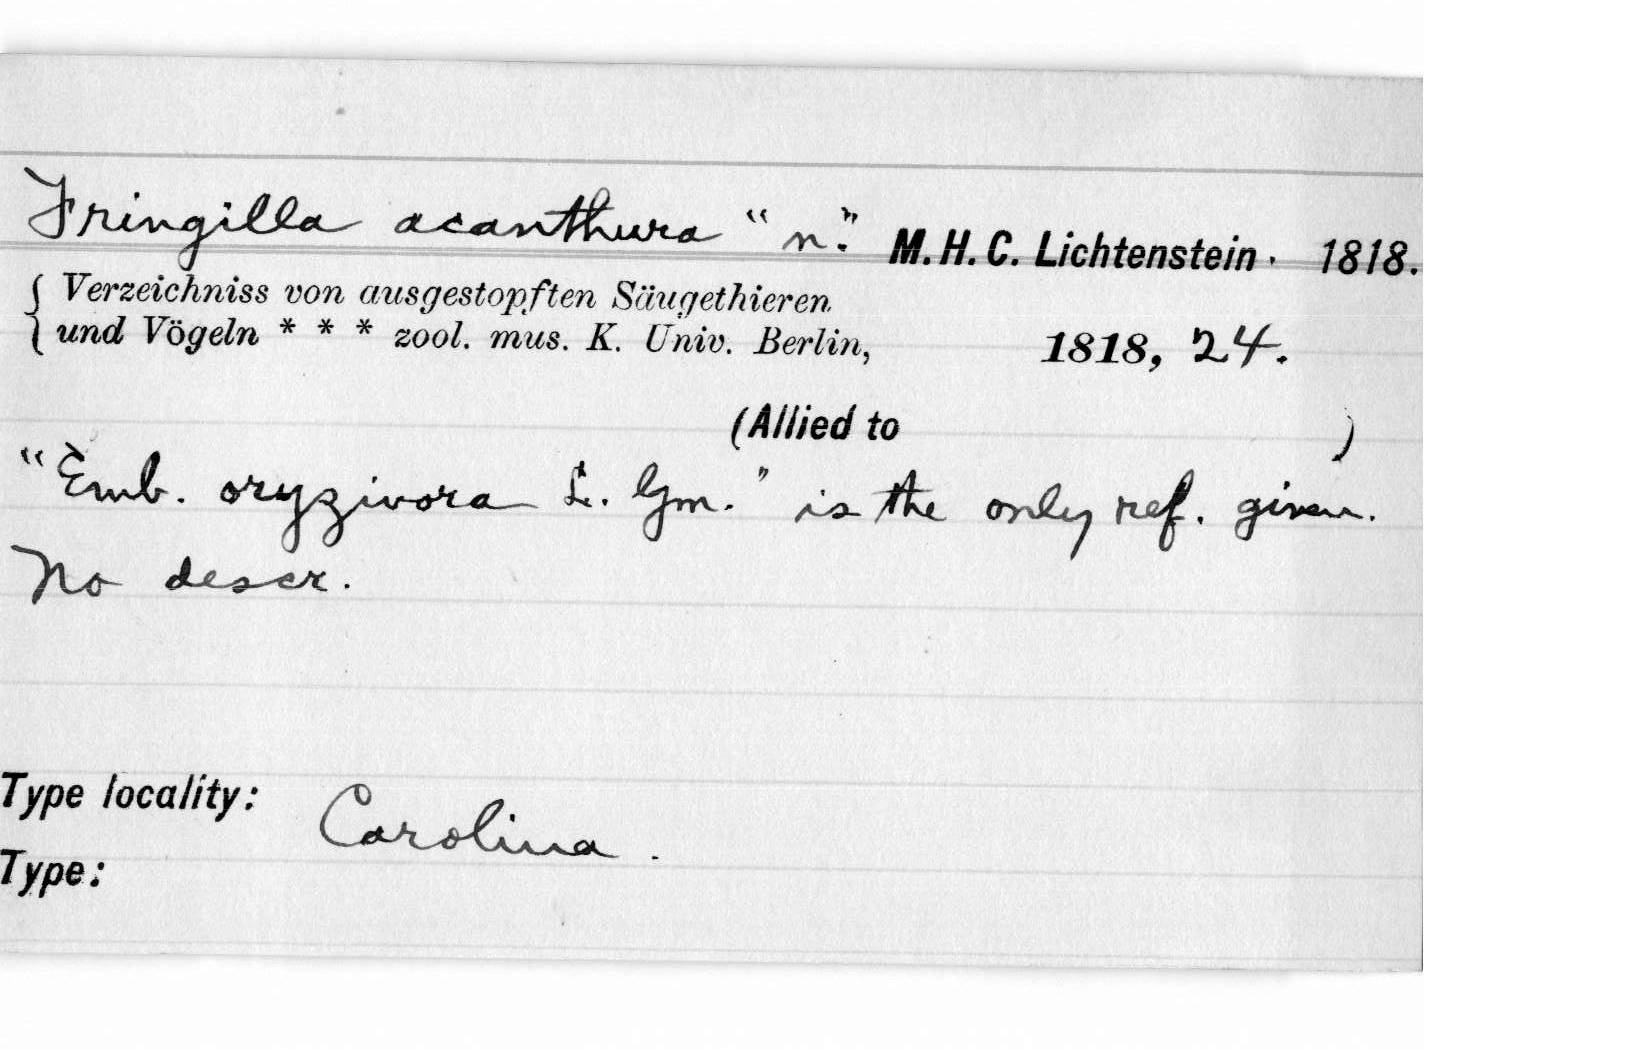 Fringilla acanthura "n." M. H. C. Lichtenstein. 1818.
Verzeichniss von ausgestopften Säugethieren
und Vögeln * * * zool. mus. K. Univ. Berlin, 1818, 24.
(Allied to )
"Emb. oryzivora L. Gm." is the only ref. given.
No descr.
Type locality: Carolina.
Type: